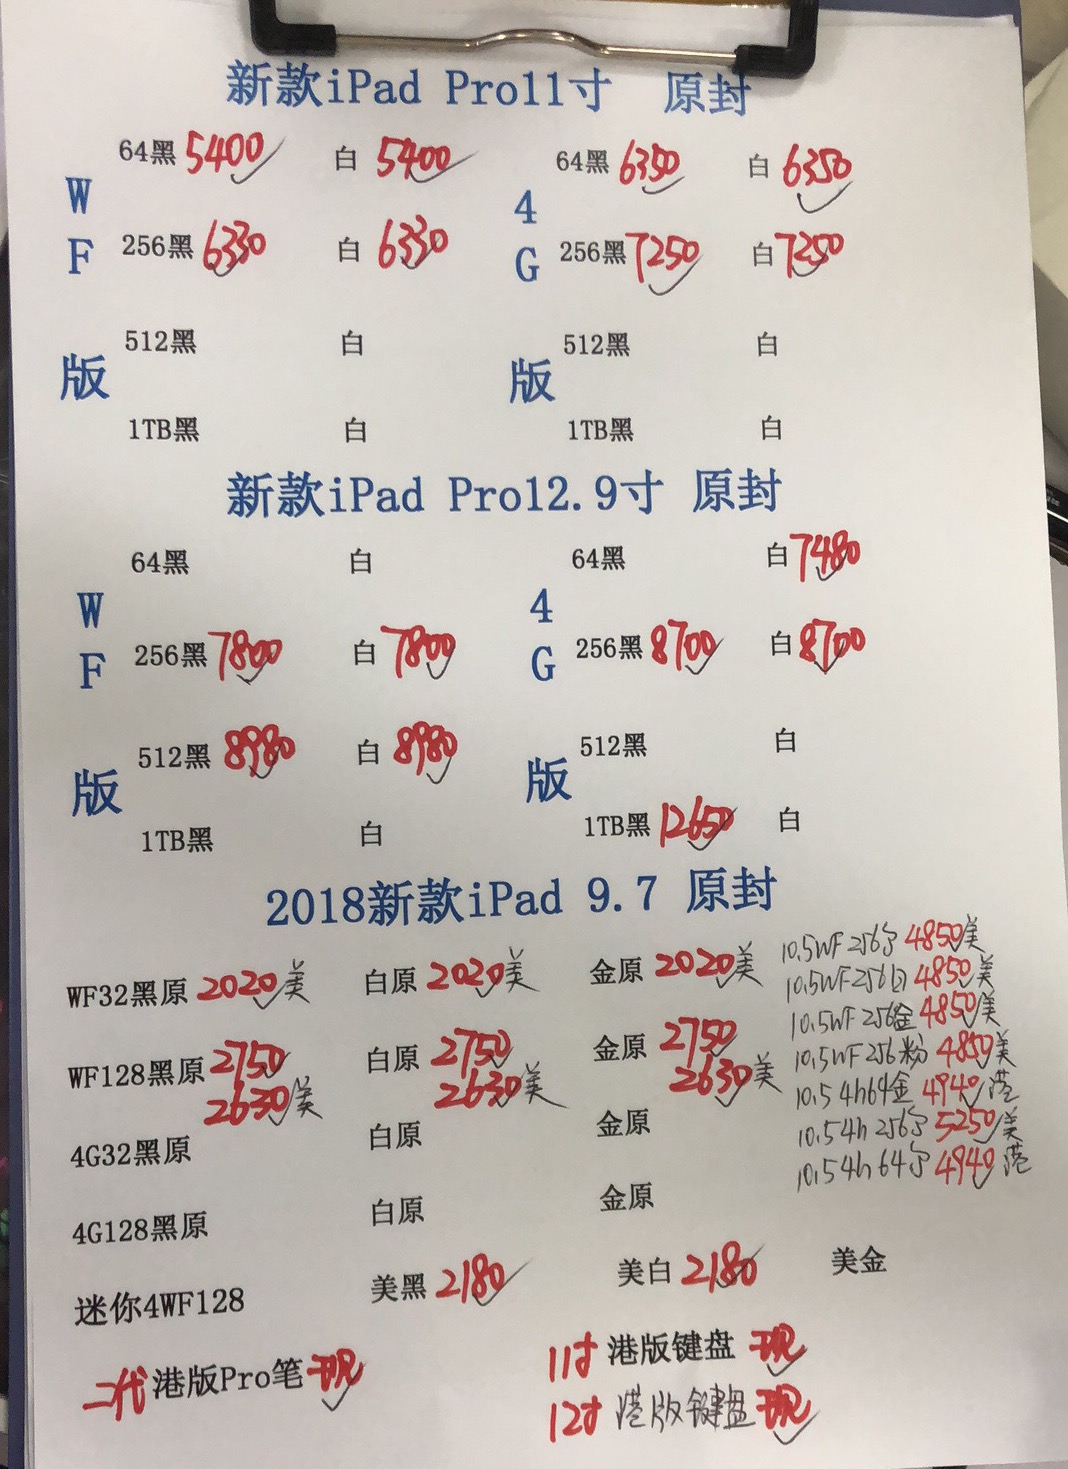 新款iPad Pro11寸 原封
WF版 4G版
64黑 5400 白 5400 64黑 6350 白 6350
256黑 6330 白 6330 256黑 7250 白 7250
512黑 白 512黑 白
1TB黑 白 1TB黑 白
新款iPad Pro12.9寸 原封
WF版 4G版
64黑 白 64黑 白 7480
256黑 7800 白 7800 256黑 8700 白 8700
512黑 8980 白 8980 512黑 白
1TB黑 白 1TB黑 12650 白
2018新款iPad 9.7 原封
WF32黑原 2020美 白原 2020美 金原 2020美
WF128黑原 2750 白原 2750 金原 2750
2630美 2630美 2630美
4G32黑原 白原 金原
4G128黑原 白原 金原
10.5WF 256 4850美
10.5WF256白 4850美
10.5WF 256金 4850美
10.5WF 256粉 4850美
10.5 4h64金 4940港
10.5 4h 256 5250美
10.5 4h 64 4940港
迷你4WF128 美黑 2180 美白 2180 美金
二代港版Pro笔 现 11寸 港版键盘 现
12寸 港版键盘 现